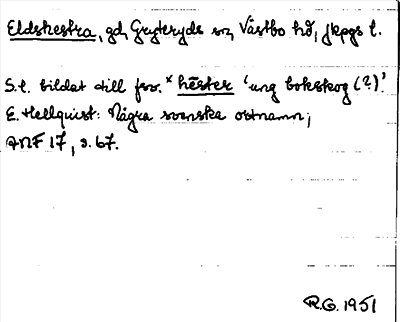 Eldshestra, gd, Gryteryds sn, Västbo hd, Jkpgs l.
S.l. bildat till fsv. *hēster 'ung bokskog (?)'.
E. Hellquist: Några svenska ortnamn,
ANF 17, s. 67.
R.G. 1951